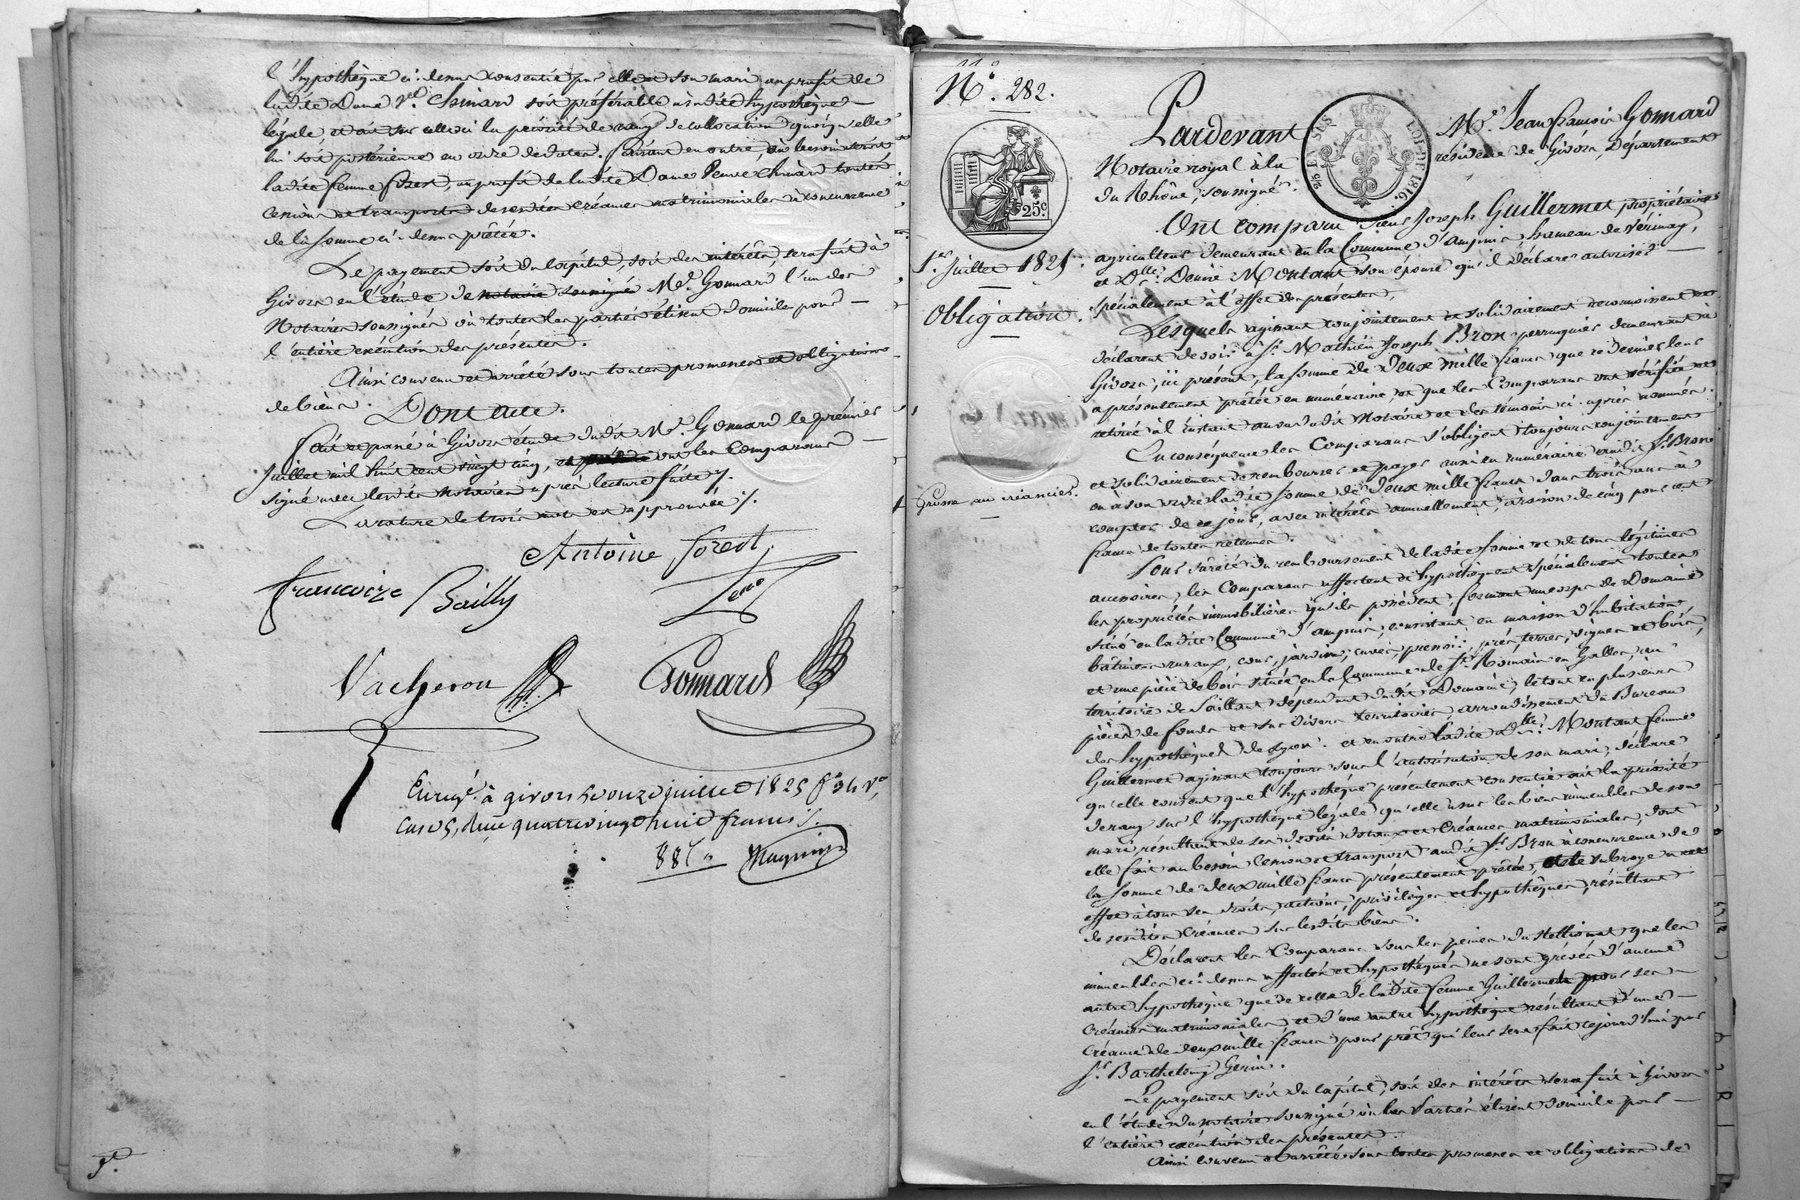 l'hypothèque ci-dessus consentie par elle et son mari au profit de
ladite Dame Ve. Chinard soit préférable à sadite hypothèque
légale et ait sur celle-ci la priorité de rang de collocation quoiqu'elle
lui soit postérieure en ordre de dates. faisant en outre, où besoin serait
ladite femme forest, au profit de ladite Dame Veuve Chinard toutes
cessions et transports de ses dites créances matrimoniales à concurrence
de la somme ci-dessus prêtée.
Le payement soit du capital, soit des intérêts, sera fait à
Givors en l'étude de Me. Gonnard l'un des
Notaires soussignés où toutes les parties élisent domicile pour
l'entière exécution des présentes.
Ainsi convenu et arrêté sous toutes promesses et obligations
de biens. Dont acte.
fait et passé à Givors étude dudit Me. Gonnard le premier
Juillet mil huit cent vingt cinq, et ont les Comparans
signé avec lesdits Notaires après lecture faite ./.
La rature de trois mots est approuvée ./.
Antoine forest
francoize Bailly
Vacheron Gonnard
Enregé. à givors le onze juillet 1825 fo. 96 Vo.
case 5, Reçu quatre vingt huit francs
N°. 282.
Pardevant Me. Jean françois Gonnard
Notaire royal à la résidence de Givors, Département
du Rhône, soussigné.
25 EN SUS
LOI DE 1816.
25c
1er. Juillet 1825.
Obligation.
Grosse au créancier.
Ont comparu Sieur Joseph Guillermet propriétaire
agriculteur demeurant en la Commune d'ampuis hameau de Vérinay,
et Dlle. Denise Montant son épouse qu'il déclare autoriser
spécialement à l'effet des présentes,
Lesquels agissant conjointement et solidairement reconnoissent et
déclarent devoir à Sr. Mathieu Joseph Bron perruquier demeurant à
Givors, ici présent, la somme de Deux mille francs que ce dernier leur
a présentement prêtée en numéraire et que les Comparans ont vérifiée et
retirée à l'instant au vu dudit Notaire et des témoins ci-après nommés.
En conséquence les Comparans s'obligent toujours conjointement
et solidairement de rembourser et payer aussi en numéraire audit Sr. Bron
ou à son ordre ladite somme de Deux mille francs dans trois ans à
compter de ce jour, avec intérêts annuellement, à raison de cinq pour cent
francs de toutes retenues.
Pour sûreté du remboursement de ladite somme et de tous légitimes
accessoires, les Comparans affectent et hypothèquent spécialement toutes
les propriétés immobilières qu'ils possèdent, formant un corps de Domaine
situé en ladite Commune d'ampuis, consistant en maison d'habitation
bâtimens ruraux, cour, jardin, cuves, pressoir, prés, terres, vignes et bois,
et une pièce de bois située en la Commune de St. Romain en Galles, au
territoire de Saillant dépendant dudit Domaine, le tout en plusieurs
pièces de fonds et sur divers territoires, arrondissement du Bureau
des hypothèques de Lyon. et en outre ladite Dlle. Montant femme
Guillermet agissant toujours sous l'autorisation de son mari, déclare
qu'elle consent que l'hypothèque présentement consentie ait la priorité
de rang sur l'hypothèque légale qu'elle a sur les biens immeubles de son
mari, résultant de ses droits dotaux et créances matrimoniales, dont
elle fait au besoin cession et transport audit Sr. Bron à concurrence de
la somme de deux mille francs présentement prêtée, et le subroge à cet
effet à tous ses droits, actions, privilèges et hypothèques, résultant
de sesdites créances sur lesdits biens.
Déclarent les Comparans sous les peines du stellionat que les
immeubles ci-dessus affectés et hypothéqués ne sont grevés d'aucune
autre hypothèque que de celle de ladite femme Guillermet pour ses
créances matrimoniales, et d'une autre hypothèque résultant d'une
créance de deux mille francs pour prêt qui leur sera fait cejourd'hui par
Sr. Barthelemy Gerin.
Le payement soit du capital, soit des intérêts sera fait à Givors
en l'étude du notaire soussigné où les Parties élisent domicile pour
l'entière exécution des présentes.
Ainsi convenu et arrêté sous toutes promesses et obligations de